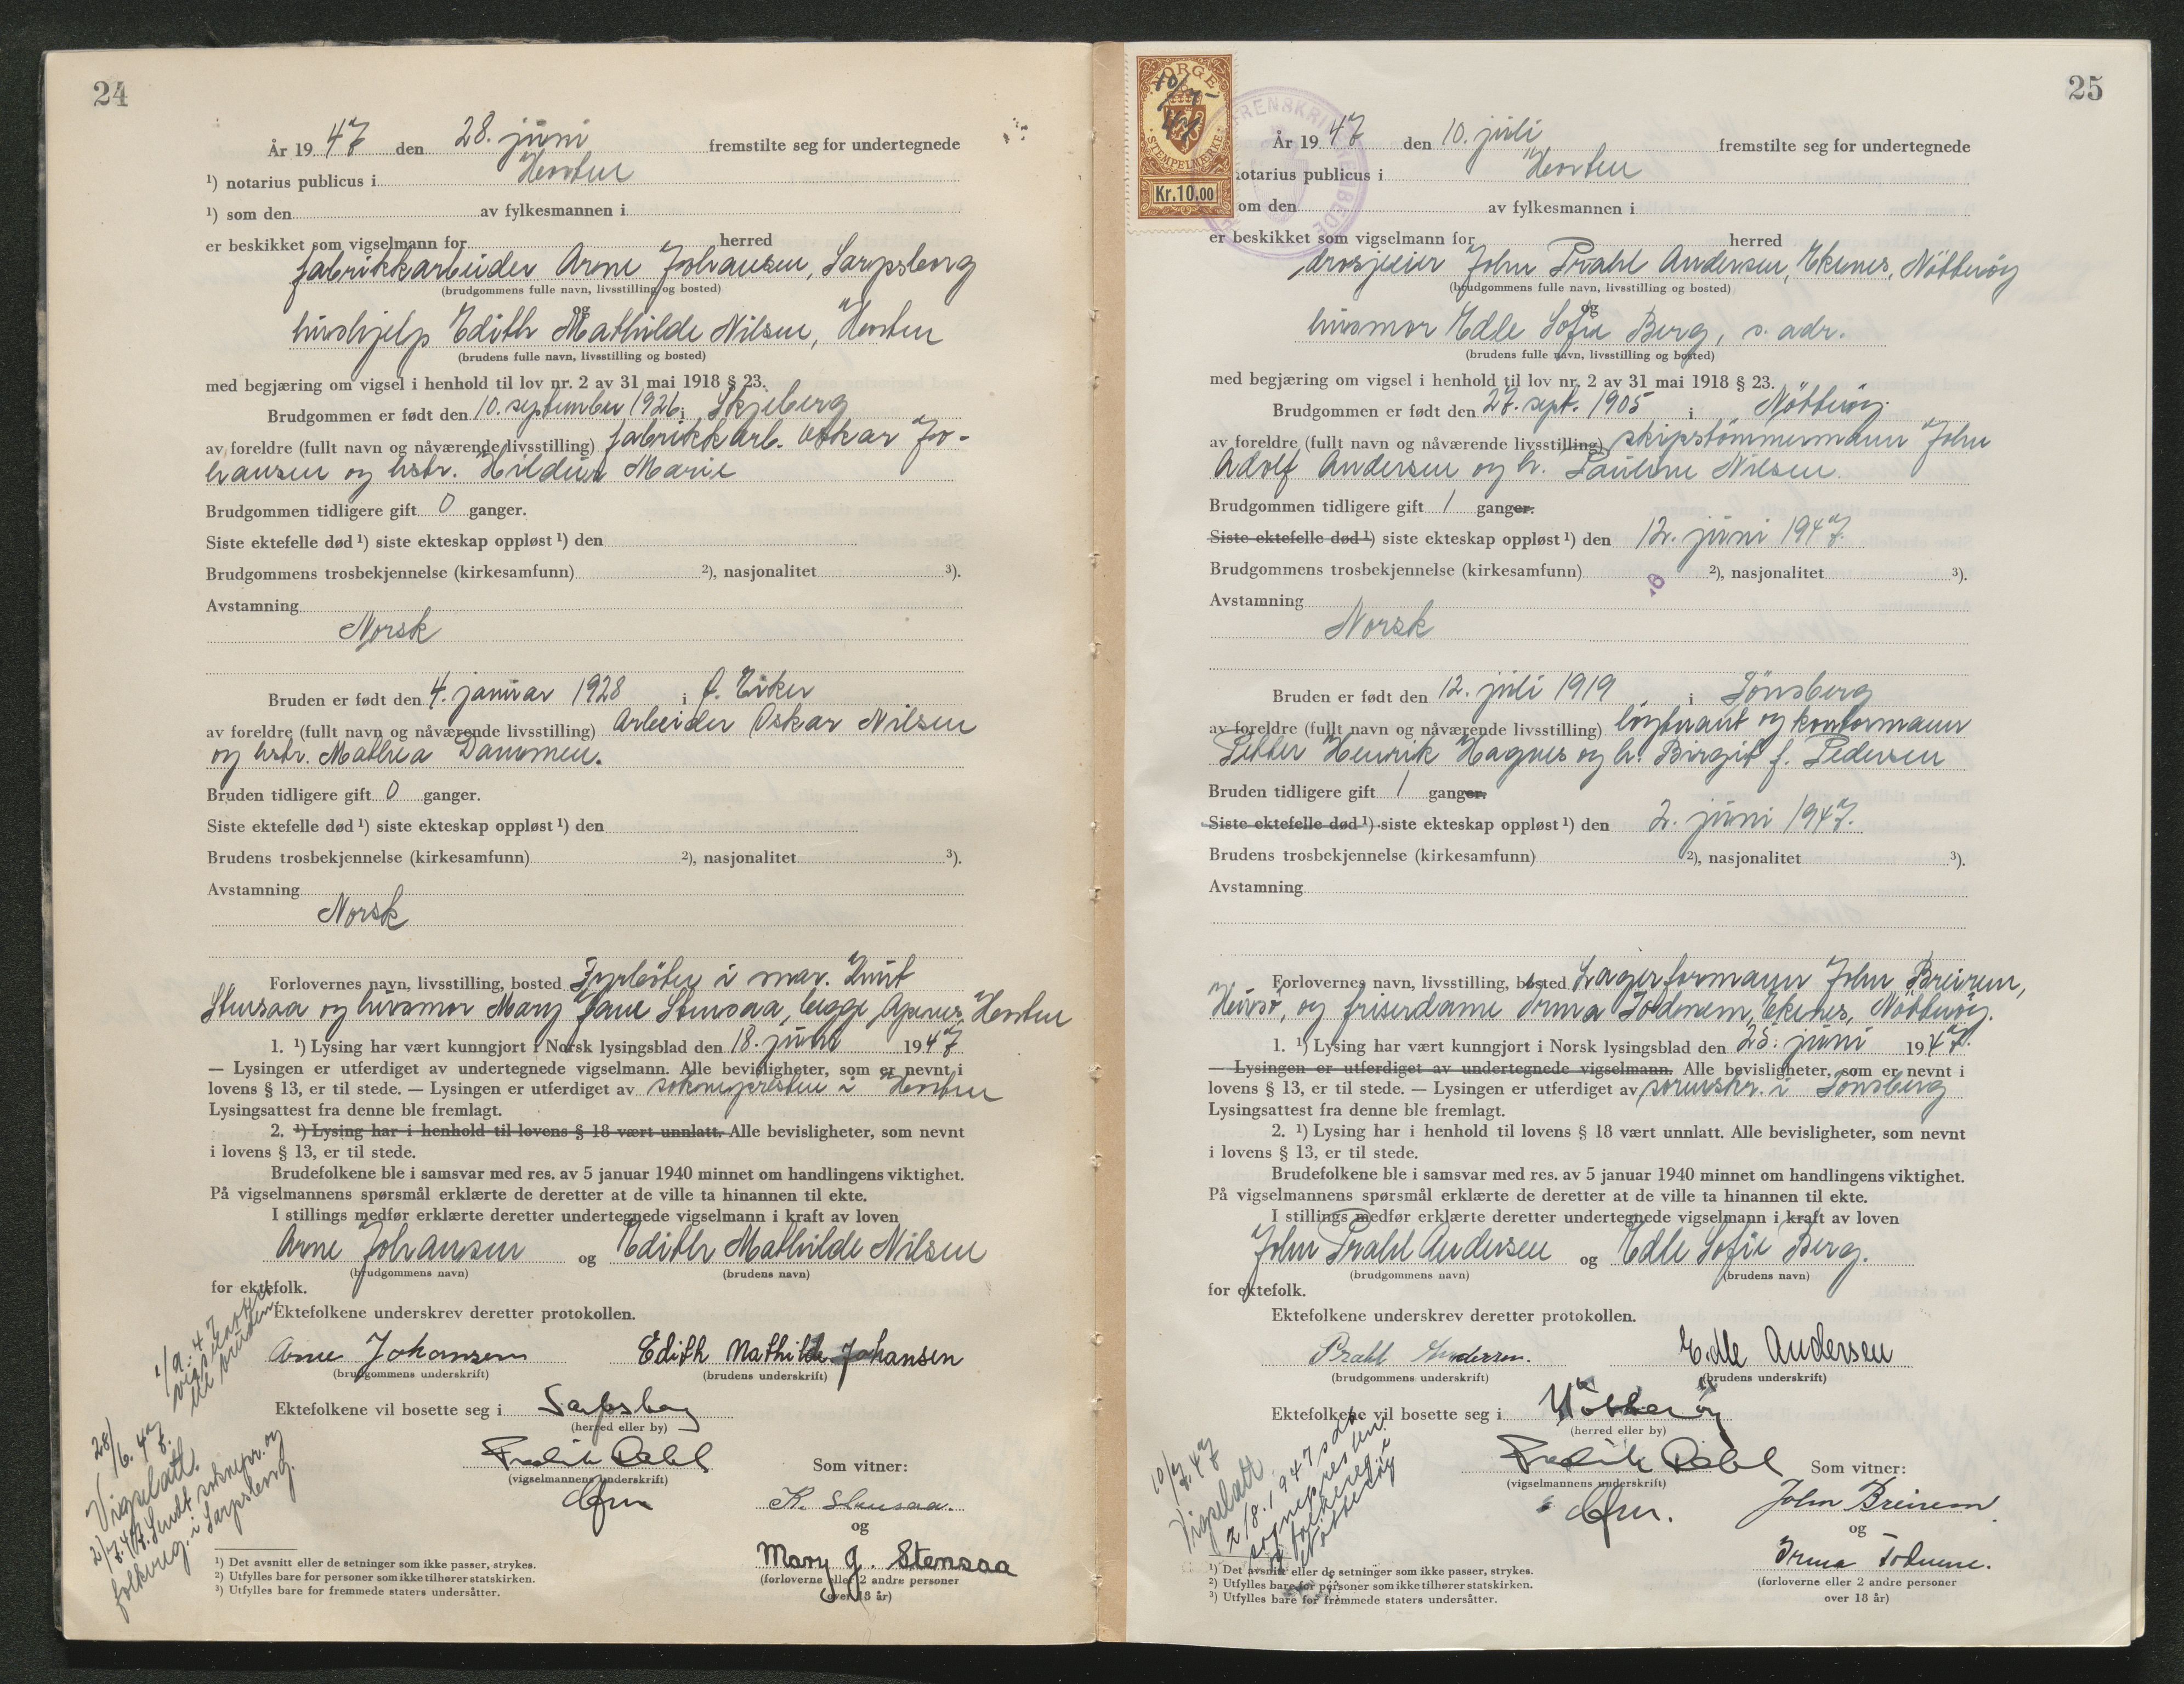 24
År 19 47 den 28. juni fremstilte seg for undertegnede
¹) notarius publicus i Horten
¹) som den av fylkesmannen i
er beskikket som vigselmann for herred
fabrikkarbeider Arne Johansen, Sarpsborg
(brudgommens fulle navn, livsstilling og bosted)
og
hushjelp Edith Mathilde Nilsen, Horten
(brudens fulle navn, livsstilling og bosted)
med begjæring om vigsel i henhold til lov nr. 2 av 31 mai 1918 § 23.
Brudgommen er født den 10. september 1926 i Skjeberg
av foreldre (fullt navn og nåværende livsstilling) fabrikkarb. Oskar Jo-
hansen og hstr. Hildur Marie
Brudgommen tidligere gift 0 ganger.
Siste ektefelle død ¹) siste ekteskap oppløst ¹) den
Brudgommens trosbekjennelse (kirkesamfunn) ²), nasjonalitet ³).
Avstamning
Norsk
Bruden er født den 4. januar 1928 i Ø. Eiker
av foreldre (fullt navn og nåværende livsstilling) Arbeider Oskar Nilsen
og hstr. Mathea Dammen.
Bruden tidligere gift 0 ganger.
Siste ektefelle død ¹) siste ekteskap oppløst ¹) den
Brudens trosbekjennelse (kirkesamfunn) ²), nasjonalitet ³).
Avstamning
Norsk
Forlovernes navn, livsstilling, bosted Fyrbøter i mar. Knut
Stensaa og husmor Mary Jane Stensaa, begge Apenes, Horten
1. ¹) Lysing har vært kunngjort i Norsk lysingsblad den 18. juni 1947
— Lysingen er utferdiget av undertegnede vigselmann. Alle bevisligheter, som er nevnt i
lovens § 13, er til stede. — Lysingen er utferdiget av soknepresten i Horten
Lysingsattest fra denne ble fremlagt.
2. ¹) Lysing har i henhold til lovens § 18 vært unnlatt. Alle bevisligheter, som nevnt
i lovens § 13, er til stede.
Brudefolkene ble i samsvar med res. av 5 januar 1940 minnet om handlingens viktighet.
På vigselmannens spørsmål erklærte de deretter at de ville ta hinannen til ekte.
I stillings medfør erklærte deretter undertegnede vigselmann i kraft av loven
Arne Johansen og Edith Mathilde Nilsen
(brudgommens navn) (brudens navn)
for ektefolk.
Ektefolkene underskrev deretter protokollen.
Arne Johansen Edith Mathilde Johansen
(brudgommens underskrift) (brudens underskrift)
Ektefolkene vil bosette seg i Sarpsborg
(herred eller by)
Fredrik Dahl
(vigselmannens underskrift) Som vitner:
K. Stensaa.
og
Mary J. Stensaa
(forloverne eller 2 andre personer
over 18 år)
1/9.47
vigselattest
til bruden
28/6.47
Vigselatt.
2/7.47 Sendt soknepr. og
folkereg. i Sarpsborg.
¹) Det avsnitt eller de setninger som ikke passer, strykes.
²) Utfylles bare for personer som ikke tilhører statskirken.
³) Utfylles bare for fremmede staters undersåtter.
25
NORGE
10/7-47
STEMPELMERKE
Kr.10.00
År 19 47 den 10. juli fremstilte seg for undertegnede
notarius publicus i Horten
om den av fylkesmannen i
er beskikket som vigselmann for herred
drosjeeier John Prahl Andersen, Ekenes, Nøtterøy
(brudgommens fulle navn, livsstilling og bosted)
og
husmor Edle Sofie Berg, s. adr.
(brudens fulle navn, livsstilling og bosted)
med begjæring om vigsel i henhold til lov nr. 2 av 31 mai 1918 § 23.
Brudgommen er født den 27. sept. 1905 i Nøtterøy
av foreldre (fullt navn og nåværende livsstilling) skipstømmermann John
Adolf Andersen og h. Pauline Nilsen.
Brudgommen tidligere gift 1 ganger.
Siste ektefelle død ¹) siste ekteskap oppløst ¹) den 12. juni 1947.
Brudgommens trosbekjennelse (kirkesamfunn) ²), nasjonalitet ³).
Avstamning
Norsk
Bruden er født den 12. juli 1919 i Tønsberg
av foreldre (fullt navn og nåværende livsstilling) løytnant og kontormann
Petter Henrik Hagnes og h. Birgit f. Pedersen
Bruden tidligere gift 1 ganger.
Siste ektefelle død ¹) siste ekteskap oppløst ¹) den 2. juni 1947.
Brudens trosbekjennelse (kirkesamfunn) ²), nasjonalitet ³).
Avstamning
Forlovernes navn, livsstilling, bosted Lagerformann John Breirem,
Husø, og friserdame Irma Ekenes, Nøtterøy.
1. ¹) Lysing har vært kunngjort i Norsk lysingsblad den 25. juni 1947.
— Lysingen er utferdiget av undertegnede vigselmann. Alle bevisligheter, som er nevnt i
lovens § 13, er til stede. — Lysingen er utferdiget av sorenskr. i Tønsberg
Lysingsattest fra denne ble fremlagt.
2. ¹) Lysing har i henhold til lovens § 18 vært unnlatt. Alle bevisligheter, som nevnt
i lovens § 13, er til stede.
Brudefolkene ble i samsvar med res. av 5 januar 1940 minnet om handlingens viktighet.
På vigselmannens spørsmål erklærte de deretter at de ville ta hinannen til ekte.
I stillings medfør erklærte deretter undertegnede vigselmann i kraft av loven
John Prahl Andersen og Edle Sofie Berg.
(brudgommens navn) (brudens navn)
for ektefolk.
Ektefolkene underskrev deretter protokollen.
Prahl Andersen. Edle Andersen
(brudgommens underskrift) (brudens underskrift)
Ektefolkene vil bosette seg i Nøtterøy
(herred eller by)
Fredrik Dahl
(vigselmannens underskrift) Som vitner:
John Breirem
og
Irma
(forloverne eller 2 andre personer
over 18 år)
10/7.47
Vigselatt.
2/8.1947 sdt.
sognepresten
og folkereg. i
Nøtterøy
¹) Det avsnitt eller de setninger som ikke passer, strykes.
²) Utfylles bare for personer som ikke tilhører statskirken.
³) Utfylles bare for fremmede staters undersåtter.